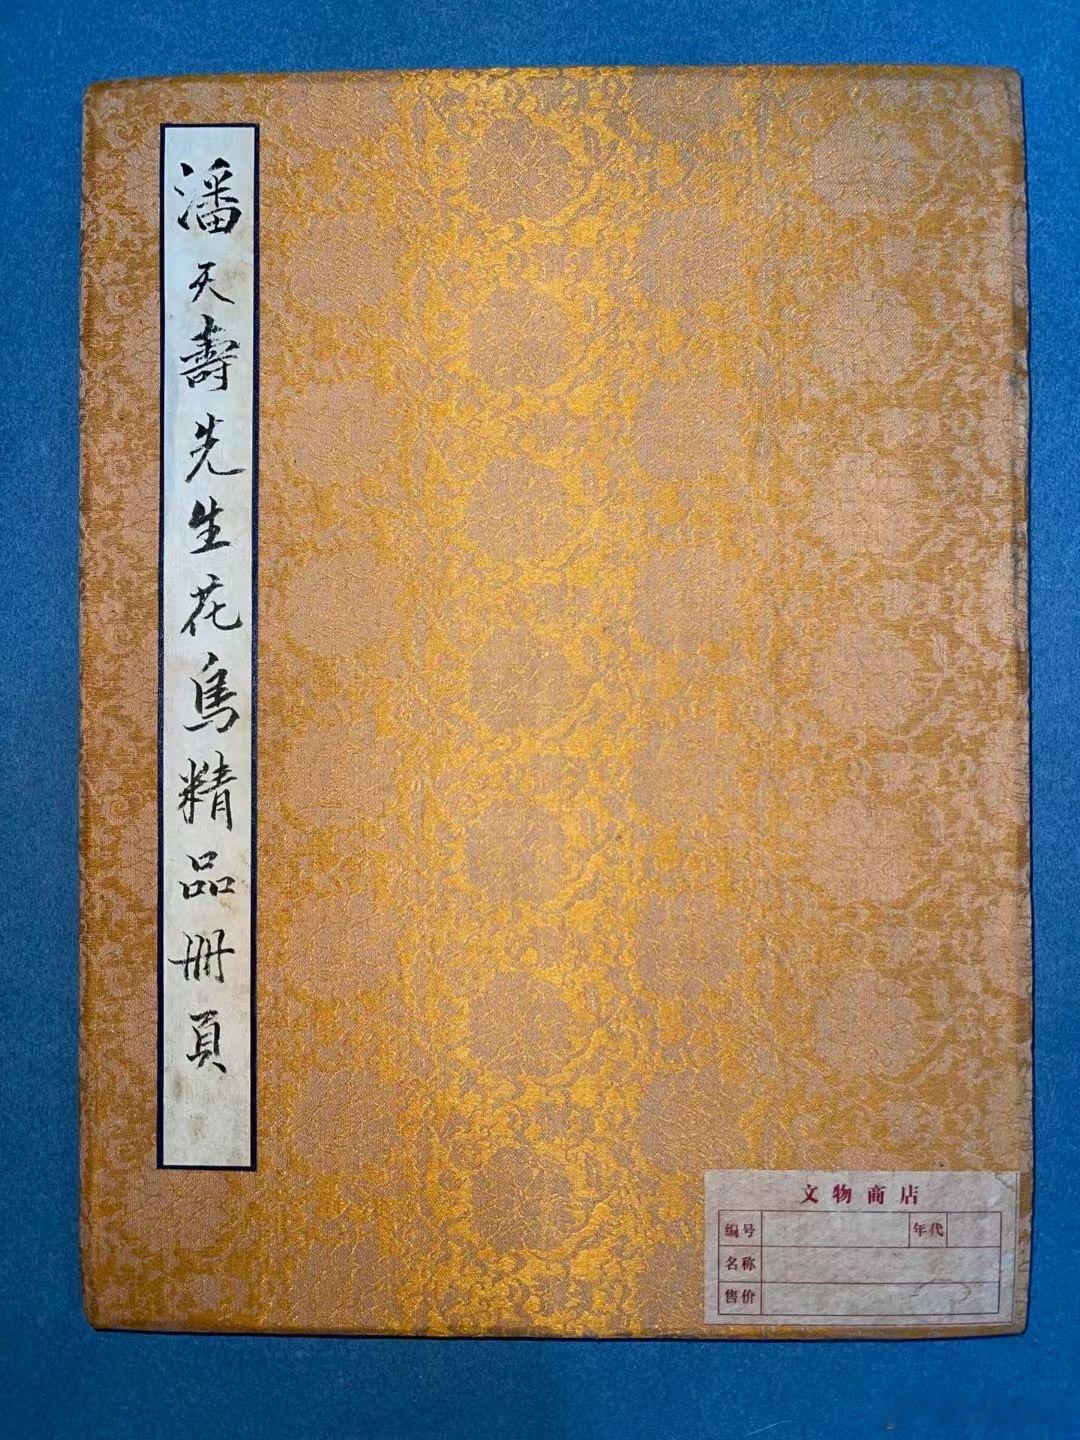 潘天壽先生花鳥精品冊頁
文物商店
编号
年代
名称
售价